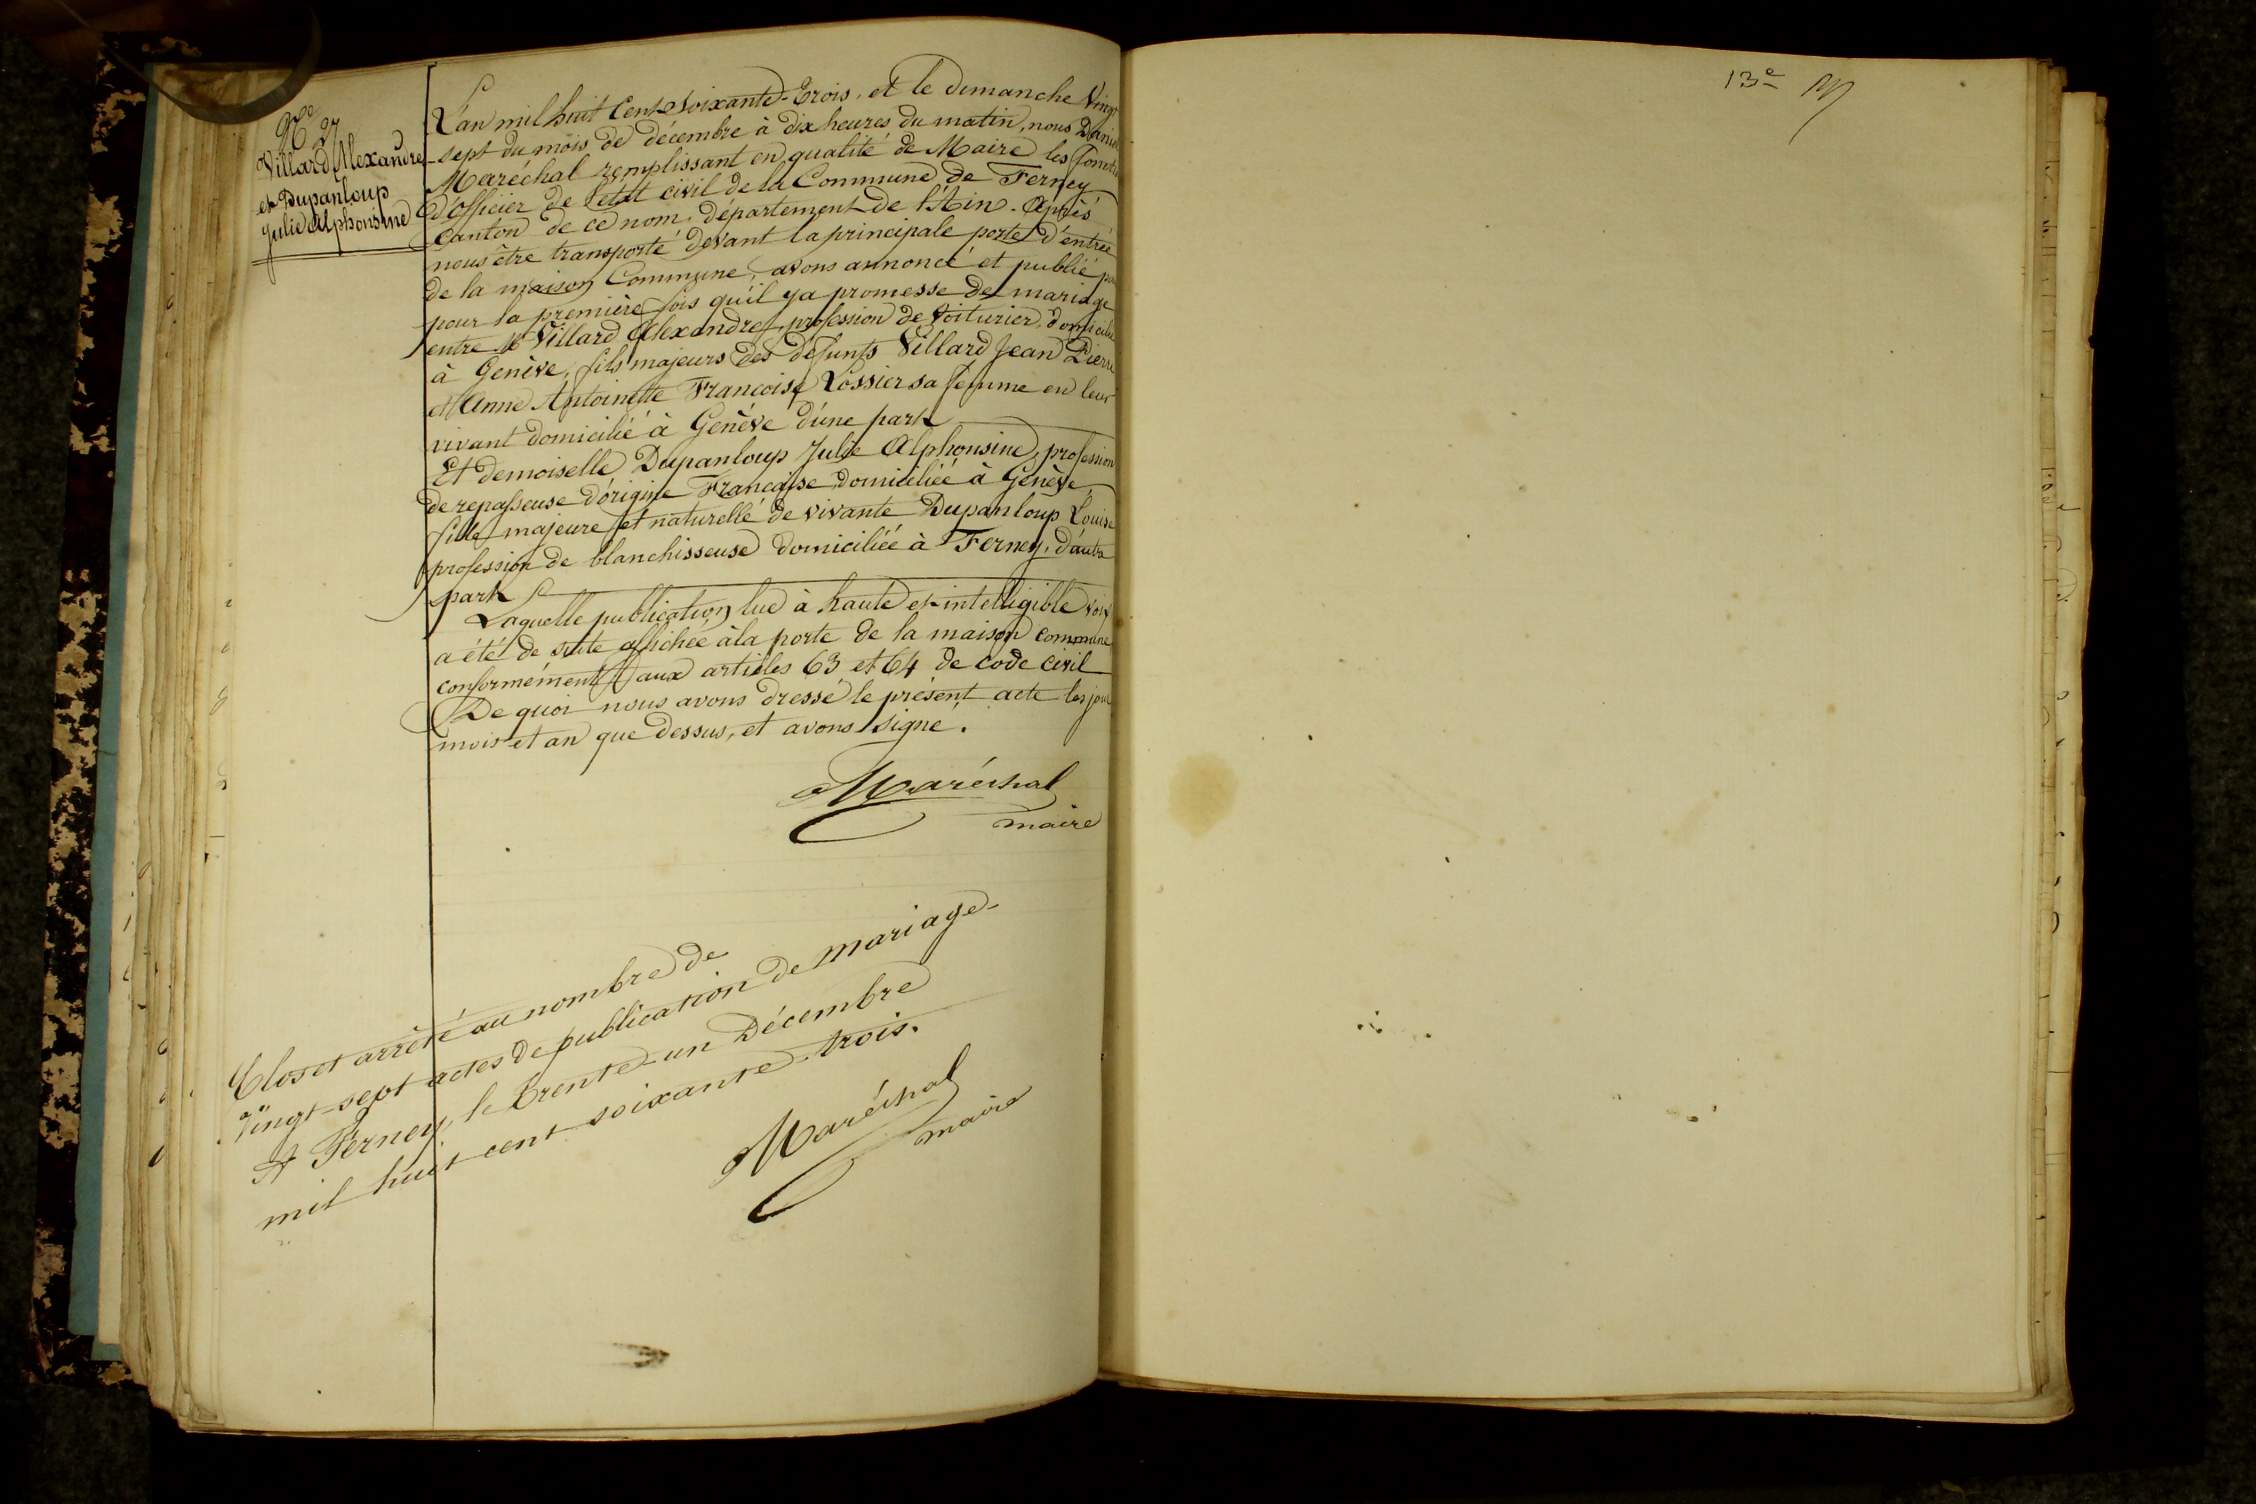 No 27
Villard Alexandre
et Dupanloup
Julie Alphonsine
L'an mil huit Cent Soixante-Trois, et le dimanche Vingt
-sept du mois de décembre à dix heures du matin, nous Danie
Maréchal remplissant en qualité de Maire les fonctio
d'Officier de l'état civil de la Commune de Ferney
Canton de ce nom, département de l'Ain. Après
nous être transporté devant la principale porte d'entrée
de la maison Commune, avons annoncé et publié po
pour la première fois qu'il y a promesse de mariage
entre Mr Villard Alexandre, profession de Voiturier, domicilié
à Genève, fils majeurs des défunts Villard Jean Pierre
et Anne Antoinette Françoise Lossier sa femme en leur
vivant domicilié à Genève d'une part
Et demoiselle Dupanloup Julie Alphonsine, profession
de repasseuse d'origine Française domiciliée à Genève
fille majeure et naturelle de vivante Dupanloup Louise
profession de blanchisseuse domiciliée à Ferney, d'autre
part
Laquelle publication lue à haute et intelligible voix
a été de suite affichée à la porte de la maison commune
conformément aux articles 63 et 64 de code civil
De quoi nous avons dressé le présent acte les jour
mois et an que dessus, et avons signé.
Maréchal
maire
Clos et arrêté au nombre de
Vingt-sept actes de publication de mariage
A Ferney, le Trente-un Décembre
mil huit cent soixante-trois.
Maréchal
maire
13e